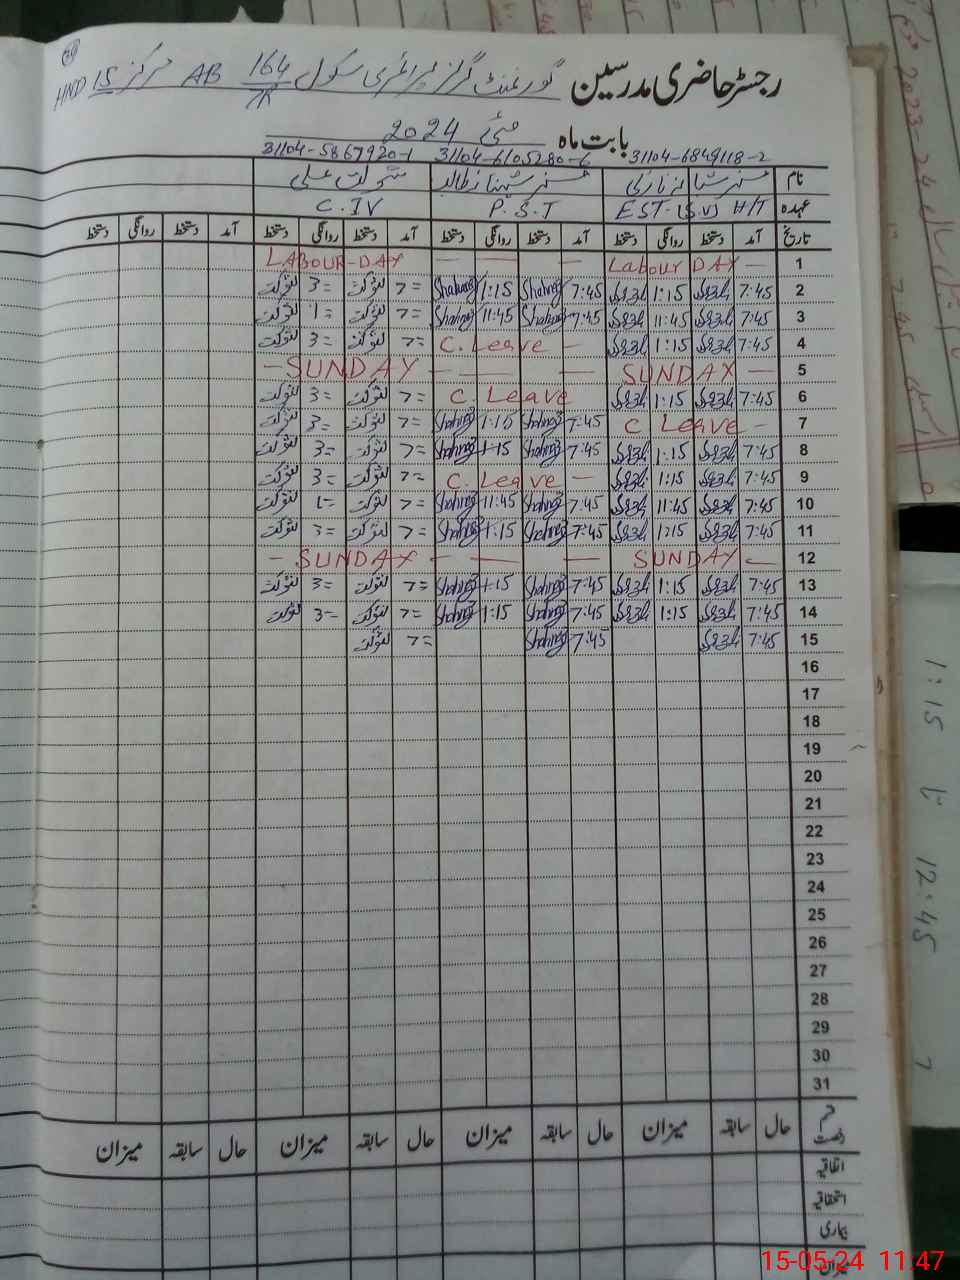 رجسٹر حاضری مدرسین گورنمنٹ گرلز پرائمری سکول 164/7R AB مرکز 15 HND
بابت ماہ مئی 2024
31104-6849118-2 31104-6105280-6 31104-5867920-1
نام مسز شہناز طالب شوکت علی
عہدہ EST.(S.V) H/T P.S.T C.IV
تاریخ آمد دستخط روانگی دستخط آمد دستخط روانگی دستخط آمد دستخط روانگی دستخط آمد دستخط روانگی دستخط
1 Labour DAY — — — LABOUR-DAY
2 7:45 1:15 7:45 Shahnaz 1:15 Shahnaz 7= شوکت 3= شوکت
3 7:45 11:45 7:45 Shahnaz 11:45 Shahnaz 7= شوکت 1= شوکت
4 7:45 1:15 C. Leave — 7= شوکت 3= شوکت
5 SUNDAY — — — — SUNDAY —
6 7:45 1:15 C. Leave 7= شوکت 3= شوکت
7 C Leave — 7:45 Shahnaz 1:15 Shahnaz 7= شوکت 3= شوکت
8 7:45 1:15 7:45 Shahnaz 1:15 Shahnaz 7= شوکت 3= شوکت
9 7:45 1:15 C. Leave — 7= شوکت 3= شوکت
10 7:45 11:45 7:45 Shahnaz 11:45 Shahnaz 7= شوکت 1= شوکت
11 7:45 1:15 7:45 Shahnaz 1:15 Shahnaz 7= شوکت 3= شوکت
12 SUNDAY — — — — SUNDAY —
13 7:45 1:15 7:45 Shahnaz 1:15 Shahnaz 7= شوکت 3= شوکت
14 7:45 1:15 7:45 Shahnaz 1:15 Shahnaz 7= شوکت 3= شوکت
15 7:45 7:45 Shahnaz 7= شوکت
16
17
18
19
20
21
22
23
24
25
26
27
28
29
30
31
قسم رخصت حال سابقہ میزان حال سابقہ میزان حال سابقہ میزان حال سابقہ میزان
اتفاقیہ
استحقاقیہ
بیماری
میزان
15-05-24 11:47
1:15 تا 12:45